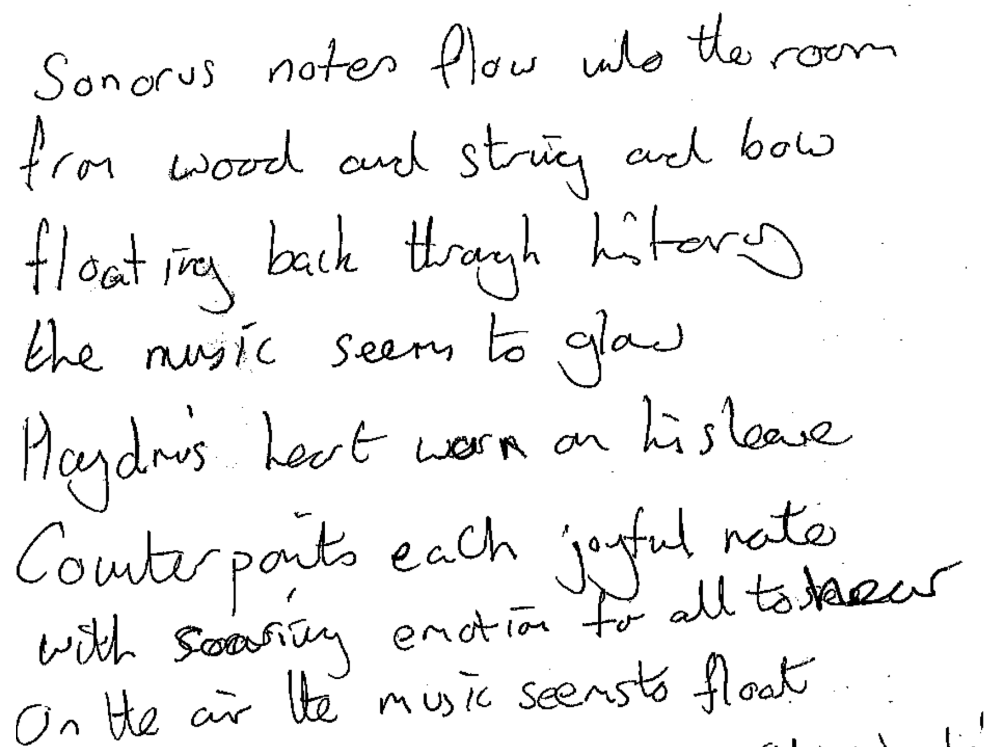 Sonorus notes flow into the room
from wood and string and bow
floating back through history
the music seems to glow
Haydn's heart worn on his sleave
Counterpoints each joyful note
with soaring emotion for all to hear
On the air the music seems to float